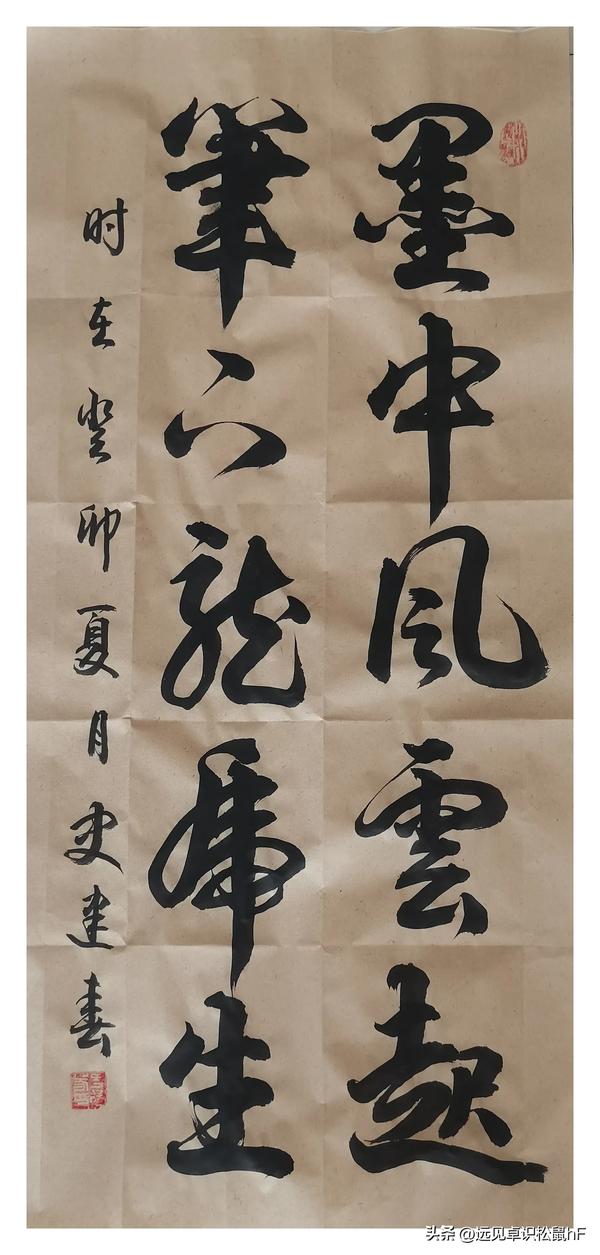 墨中风雲起
筆下龍虎生
时在癸卯夏月史建春
头条 @远见卓识松鼠hF